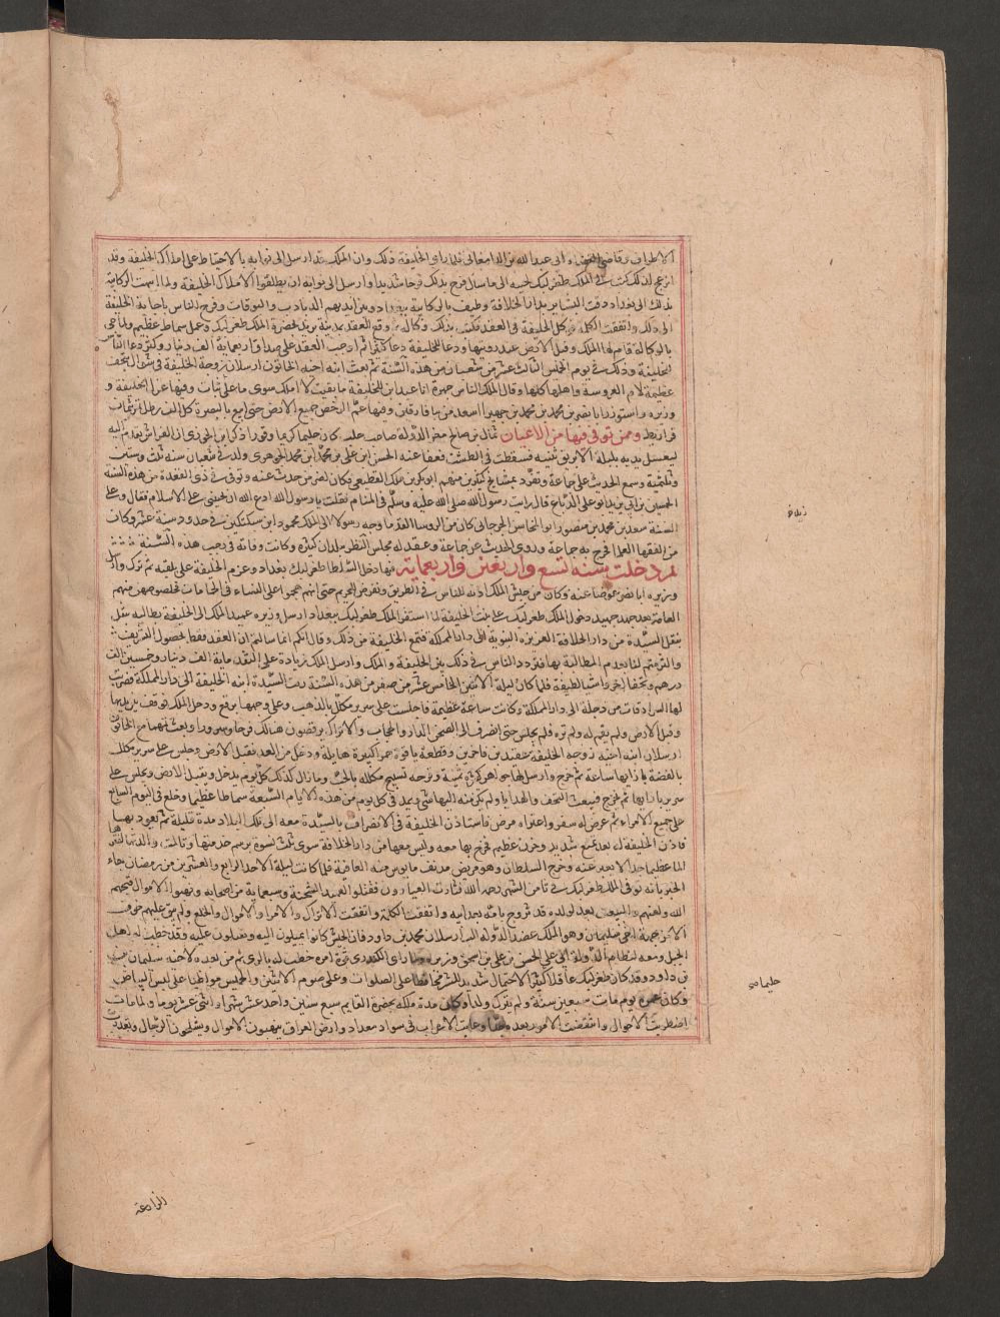 الاطراف وقاضي وابى عبد الله بن الدامغانى فلما راى الخليفة ذلك وان الملك قد ارسل الى نوابه بالاحتياط على املاك الخليفة وقد
انزعج لذلك كتب الى الملك طغرلبك يجيبه الى ما سال فرح بذلك فرحا شديدا وارسل الى نوابه ان يطلقوا الاملاك الخليفة
ذلك الى بغداد دقت البشاير بدار الخلافة وطيف بالوكالة وبين ايديهم الدبادب والبوقات وفرح الناس باجابة الخليفة
الى ذلك واتفقت الكلمة فوكل الخليفة فى العقد فكتب بذلك وكالة ثم وقع العقد بمدينة تبريز بحضرة الملك طغرلبك وعمل سماط عظيم ولما جى
بالوكالة قام لها الملك وقبل الارض عند رويتها ودعا للخليفة دعا كثيرا ثم اوجب العقد على صداق اربعماية الف دينار وكثر دعا الناس
للخليفة وذلك فى يوم الخميس الثالث عشر من شعبان من هذه السنة ثم بعث ابنة اخيه الخاتون ارسلان زوجة الخليفة فى شوال بتحف
عظيمة لام العروسة واهلها كلها وقال الملك للناس جهرة انا عبد الخليفة ما بقيت لا املك سوى ما على ثيابى وفيها عزل الخليفة
وزيره واستوزر ابا نصر محمد بن محمد بن جهير استقدمه من ميا فارقين وفيها عم الرخص جميع الارض حتى ابيع بالبصرة كل الف رطل تمر بثمان
قراريط وممن توفى فيها من الاعيان ثمال بن صالح معز الدولة صاحب حلب كان حليما كريما وقورا ذكر ابن الجوزى ان الفراش تقدم اليه
ليغسل يديه بلبلة الابريق ثنيته فسقطت فى الطشت فعفا عنه الحسن بن على بن محمد ابو محمد الجوهرى ولد فى شعبان سنة ثلث وستين
وثلثمية وسمع الحديث على جماعة وتفرد بمشايخ كثيرين منهم ابو بكر بن مالك القطيعى وكان اخر من حدث عنه وتوفى فى ذى القعدة من هذه السنة
الحسين بن ابى زيد ابو على الدباغ قال رايت رسول الله صلى الله عليه وسلم فى المنام فقلت يا رسول الله ادع الله ان يحيينى على الاسلام فقال وعلى
السنة سعد بن محمد بن منصور ابو المحاسن الجرجانى كان من الروسا القدما وجه رسولا الى الملك محمود ابن سبكتكين فى حدود سنة عشر وكان
من الفقها العلما تخرج به جماعة وروى الحديث عن جماعة وعقد له مجلس النظر ببلدان كثيرة وكانت وفاته فى رجب هذه السنة
ثم دخلت سنة وخمسين واربعماية فيها دخل السلطان طغرلبك بغداد وعزم الخليفة على تلقيه ثم ترك وارسل
وزيره ابا نصر عوضا عنه وكان من جيش الملك اذية للناس فى الطريق وتعرض الحريم حتى انهم هجموا على النساء فى الحمامات فخلصوهن منهم
العامة بعد جهد جهيد دخول الملك طغرلبك على بنت الخليفة لما استقر الملك طغرلبك ببغداد ارسل وزيره عميد الملك الى الخليفة يطالبه بنقل
بنقل السيدة من دار الخلافة العزيزة النبوية الى دار المملكة فتمنع الخليفة من ذلك وقال انكم انما سالتم ان العقد فقط لحصول التشريف
والتزمتم لنا بعدم المطالبة بها فتردد الناس فى ذلك بين الخليفة والملك وارسل الملك زيادة على النقد ماية الف دينار وخمسين الف
درهم وتحفا اخر واشيا لطيفة فلما كان ليلة الاثنين الخامس عشر من صفر من هذه السنة زفت السيدة ابنة الخليفة الى دار المملكة فضربت
لها السرادقات من دجلة الى دار المملكة وكانت ساعة عظيمة فاجلست على سرير مكلل بالذهب وعلى وجهها برقع ودخل الملك فوقف بين يديها
وقبل الارض ولم يقم له ولم تره فلم يجلس حتى انصرف الى الصحن الدار والحجاب والاتراك يرقصون هنالك فرحا وسرورا وبعث لها مع الخاتون
ارسلان ابنة اخيه زوجة الخليفة عقدين فاخرين وقطعة ياقوت حمرا كبيرة هايلة ودخل من الغد فقبل الارض وجلس على سرير مكلل
بالفضة بازايها ساعة ثم خرج وارسل لها جواهر كثيرة ثمينة وفرجية نسيج مكللة بالحب وما زال كذلك كل يوم يدخل ويقبل الارض ويجلس على
سرير بازايها ثم يخرج فيبعث التحف والهدايا ولم يكن منه اليها شى ويمد فى كل يوم من هذه الايام السبعة سماطا عظيما وخلع فى اليوم السابع
على جميع الامراء ثم عرض له سفر واعتراه مرض فاستاذن الخليفة فى الانصراف بالسيدة معه الى تلك البلاد مدة قليلة ثم يعود بها
فاذن الخليفة له بعد تمنع شديد وحزن عظيم فخرج بها معه وليس معها من دار الخلافة سوى ثلث نسوة برسم خدمتها وتالمت والدتها لفقدها
الما عظيما جدا لا يعبر عنه وخرج السلطان وهو مريض مدنف مايوس منه العافية فلما كانت ليلة الاحد الرابع والعشرين من رمضان جاء
الخبر بانه توفى الملك طغرلبك فى ثامن الشهر رحمه الله فثارت العيارون فقتلوا العميد الشحنة وسبعماية من اصحابه ونهبوا الاموال
الله ولعنهم والبيعة بعد لولده قد تزوج بامه واتفقت الكلمة واتفقت الاتراك والامرا والاموال والخلع ولم يبق عليهم خوف
الا من جهة اخى سليمان وهو الملك عضد الدولة الب ارسلان محمد بن داود فان الجيش كانوا يميلون اليه ويقبلون عليه وقد خطب له اهل
الجبل ومعه نظام الدولة ابى على الحسن بن على بن اسحق وزيره ولما راى الكندرى قوة امره خطب له بالرى ثم من بعده لاخيه سليمان
بن داود وقد كان طغرلبك عاقلا كثير الاحتمال شديد محافظا على الصلوات وعلى صوم الاثنين والخميس مواظبا على لبس البياض
وكان عمره يوم مات سبعين سنة ولم يترك ولدا وكان مدة ملكه بحضرة القايم سبع سنين واحد عشر شهرا واثنى عشر يوما ولما مات
اضطربت الاحوال وانتقضت الامور بعده جدا وعاثت الاعراب فى سواد بغداد وارض العراق ينهبون الاموال ويشلحون الرجال